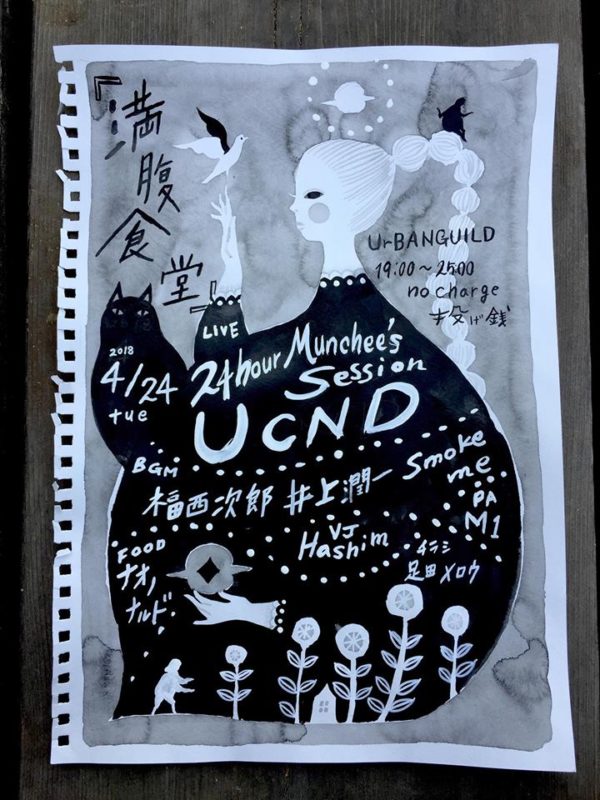 『満腹食堂』
UrBANGUILD
19:00～2500
no charge
投げ銭
2018
4/24
tue
LIVE
24hour Munchee's
Session
UCND
BGM
福西次郎 井上潤一 Smoke
me
PA
M1
VJ
Hashim
FOOD
ナオノ
ナルド
チラシ
足田メロウ